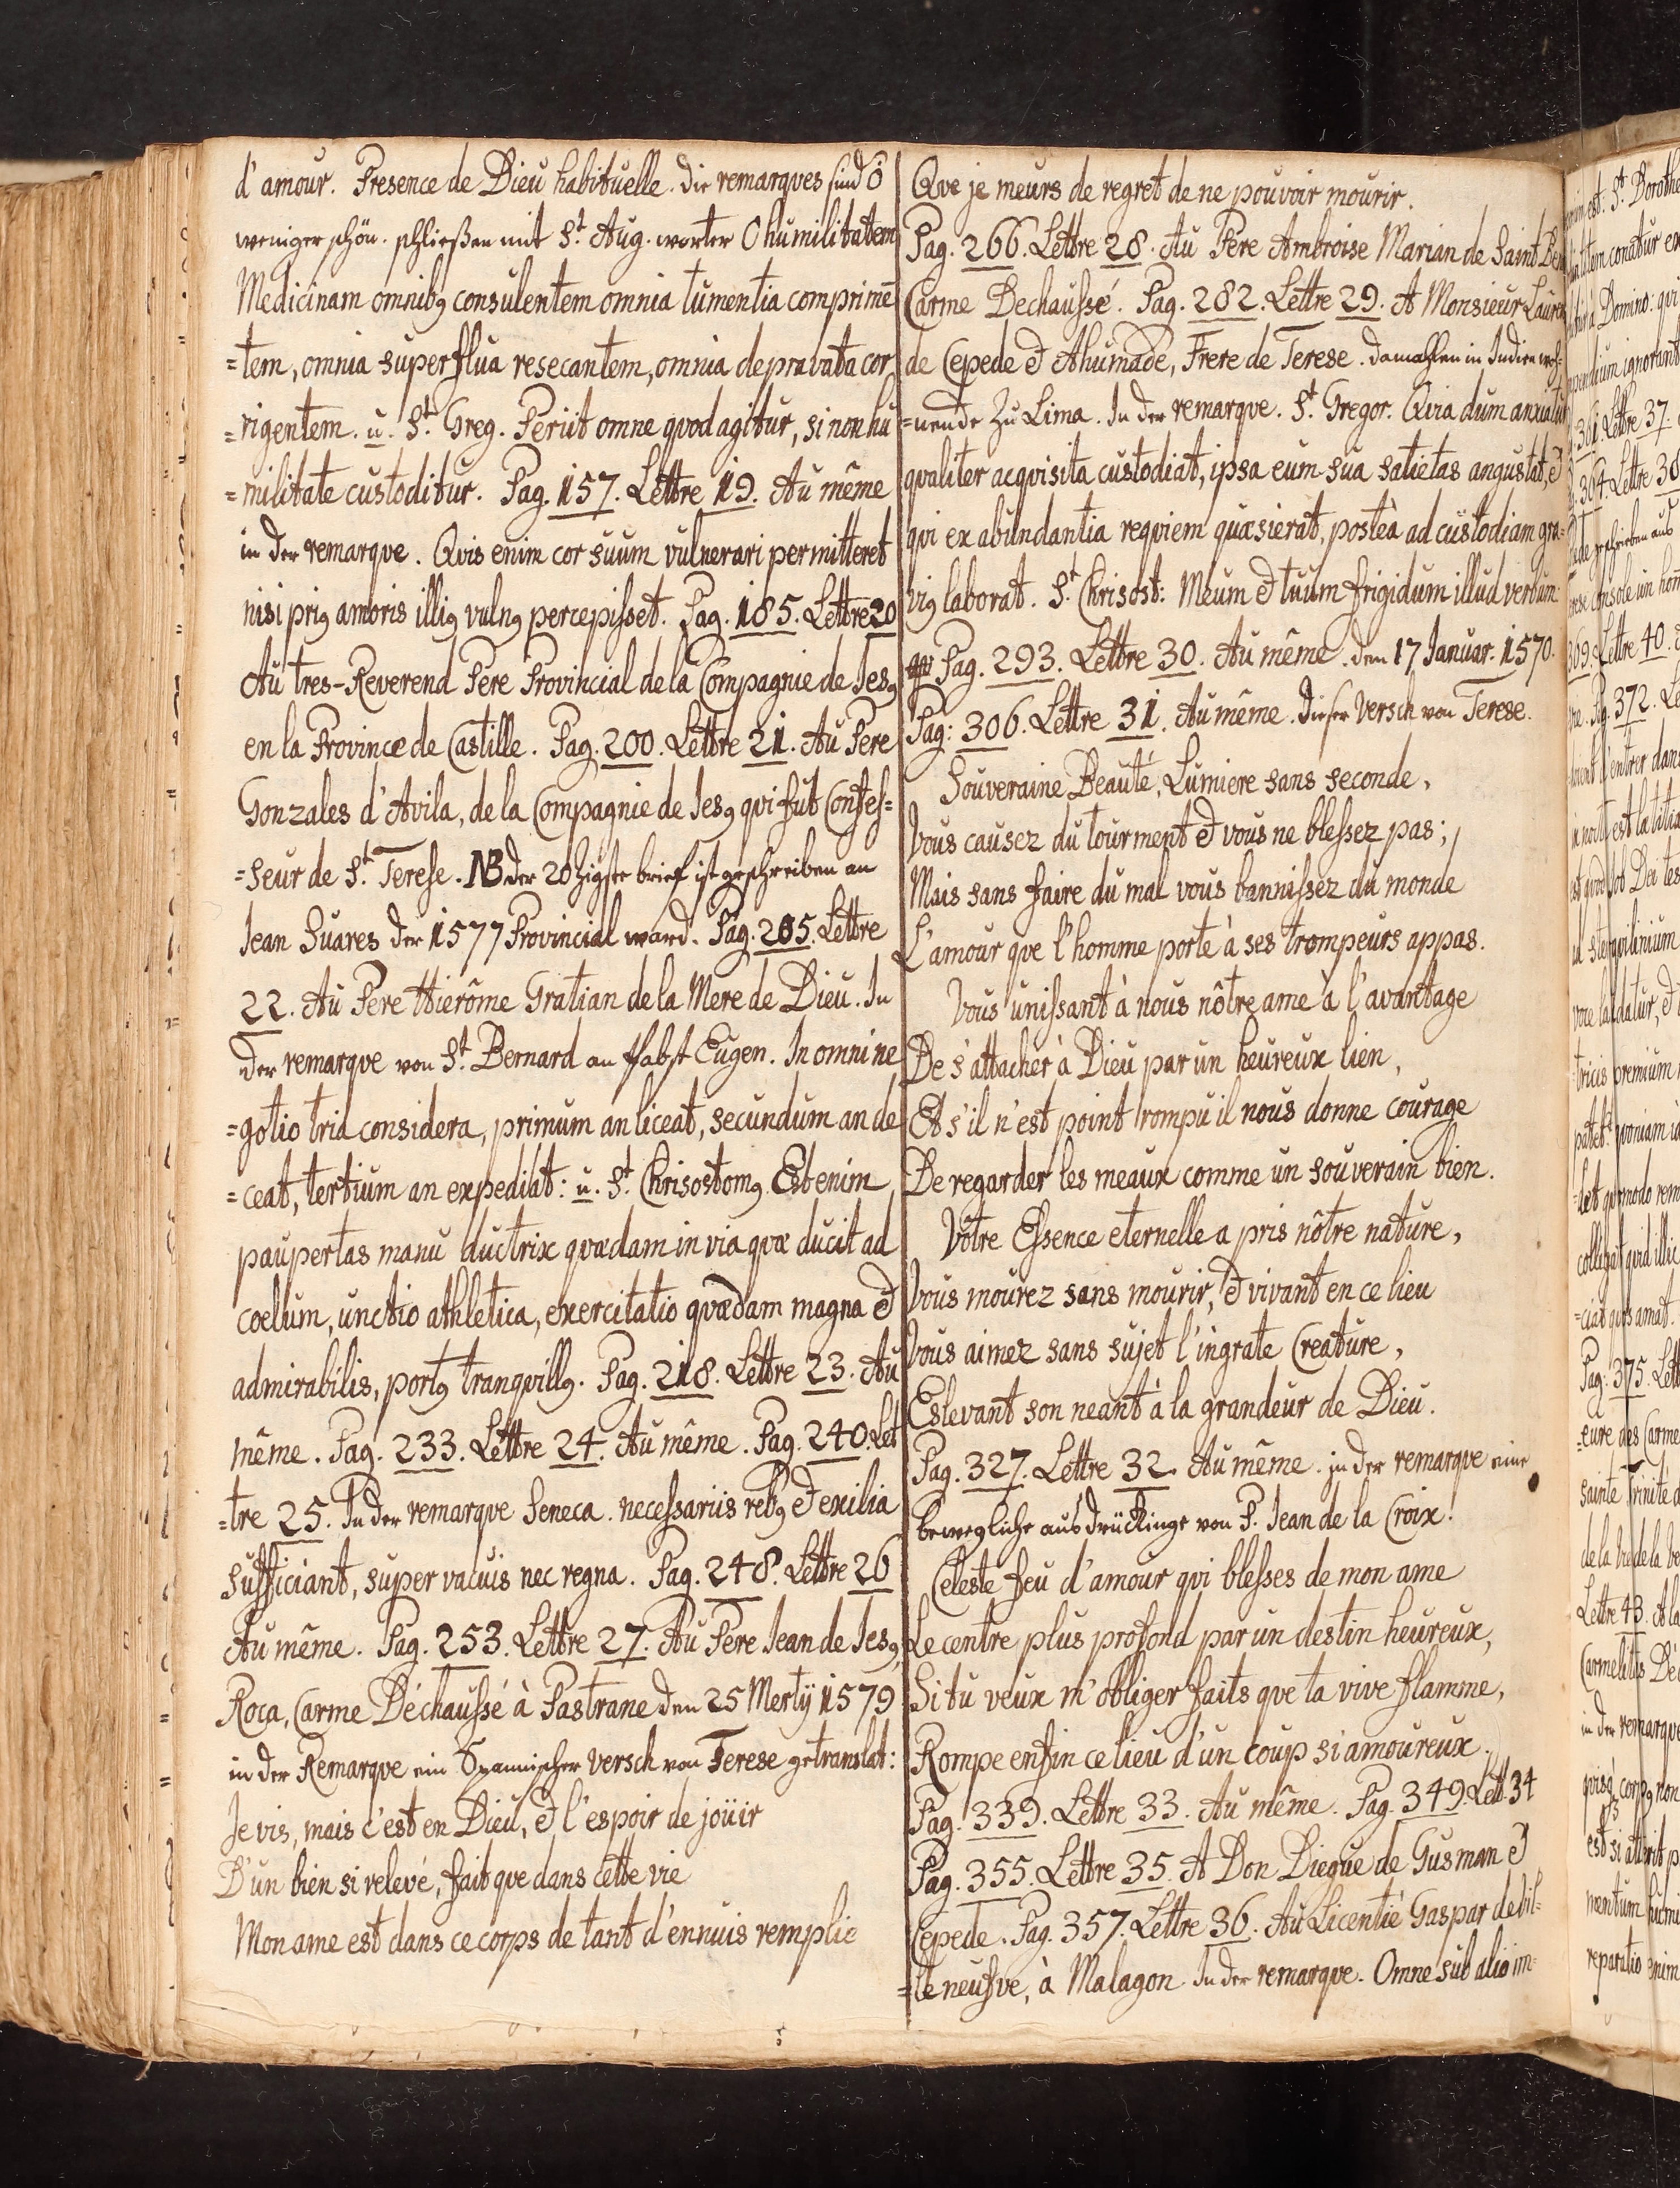 d'amour. Presence de Dieu habituelle. die remarques sind ö
weniger schön. schließen mit St. Aug. worter O humilitatem
Medicinam omnibꝯ consulentem omnia tumentia comprimē
=tem, omnia superflua resecantem, omnia depravata cor
=rigentem. u. St. Greg. Periit omne qvod agitur, si non hu
=militate custoditur. Pag. 157. Lettre 19. Au même
in der remarqve. Qvis enim cor suum vulnerari permitteret
nisi priꝯ amoris illiꝯ vulnꝯ percepisset. Pag. 185. Lettre 20
Au tres-Reverend Pere Provincial de la Compagnie de Jesꝯ
en la Province de Castille. Pag. 200. Lettre 21. Au Pere
Gonzales d'Avila, de la Compagnie de Jesꝯ qvi fut Confes=
=seur de St. Terese. NB der 20zigste brief ist geschreiben an
Jean Suares der 1577 Provincial ward. Pag. 205. Lettre
22. Au Pere Hierôme Gratian de la Mere de Dieu. In
der remarqve von St. Bernard an Pabst Eugen. In omni ne
=gotio tria considera, primum an liceat, secundum an de
=ceat, tertium an expediat: u. St. Chrisostomꝯ. Est enim
paupertas manu ductrix qvædam in via qvæ ducit ad
coelum, unctio athletica, exercitatio qvædam magna &
admirabilis, portꝯ tranqvillꝯ. Pag. 218. Lettre 23. Au
même. Pag. 233. Lettre 24. Au même. Pag. 240. Let
=tre 25. In der remarqve Seneca. necessariis rebꝯ & exilia
sufficiant, super vacuis nec regna. Pag. 248. Lettre 26
Au même. Pag. 253. Lettre 27. Au Pere Jean de Jesꝯ,
Roca, Carme Déchaussé à Pastrane den 25 Mertÿ 1579
in der Remarqve ein Spannischer versch von Terese getranslat:
Je vis, mais c'est en Dieu, & l'espoir de joüir
D'un bien si relevé, fait que dans cette vie
Mon ame est dans ce corps de tant d'ennuis remplie
Qve je meurs de regret de ne pouvoir mourir.
Pag. 266. Lettre 28. Au Pere Ambroise Marian de Saint Be
Carme Dechaussé. Pag. 282. Lettre 29. A Monsieur Lauren
de Cepede & Ahumade, Frere de Terese. damahlen in Indien woh=
=nende zu Lima. In der remarqve. St. Gregor. Qvia dum anxiatur
qvaliter acqvisita custodiat, ipsa eum sua satietas angustat, &
qvi ex abundantia reqviem quæsierat, posteà ad custodiam gra=
viꝯ laborat. St. Chrisost: Meum & tuum frigidum illud verbum
Pag. 293. Lettre 30. Au même. den 17 Januar. 1570.
Pag: 306. Lettre 31. Au même. dieser Versch von Terese.
Souveraine Beauté, Lumiere sans seconde,
Vous causez du tourment & vous ne blessez pas;
Mais sans faire du mal vous bannissez du monde
L'amour que l'homme porte à ses trompeurs appas.
Vous unissant à nous nôtre ame à l'avantage
De s'attacher à Dieu par un heureux lien,
Et s'il n'est point rompu il nous donne courage
De regarder les meaux comme un souverain bien.
Vôtre Essence eternelle a pris nôtre nature,
Vous mourez sans mourir, & vivant en ce lieu
Vous aimez sans sujet l'ingrate Creature,
Eslevant son neant à la grandeur de Dieu.
Pag. 327. Lettre 32. Au même. in der remarqve eine
bewegliche ausdrückinge von P. Jean de la Croix!
Celeste feu d'amour qui blesses de mon ame
Le centre plus profond par un destin heureux,
Si tu veux m'obliger faits que ta vive flamme,
Rompe enfin ce lieu d'un coup si amoureux.
Pag. 339. Lettre 33. Au même. Pag. 349. Lett. 34
Pag. 355. Lettre 35. A Don Diegue de Gusman &
Cepede. Pag. 357. Lettre 36. Au Licentié Gaspar de Vil=
=leneufve, à Malagon. In der remarqve. Omne sub alio im=